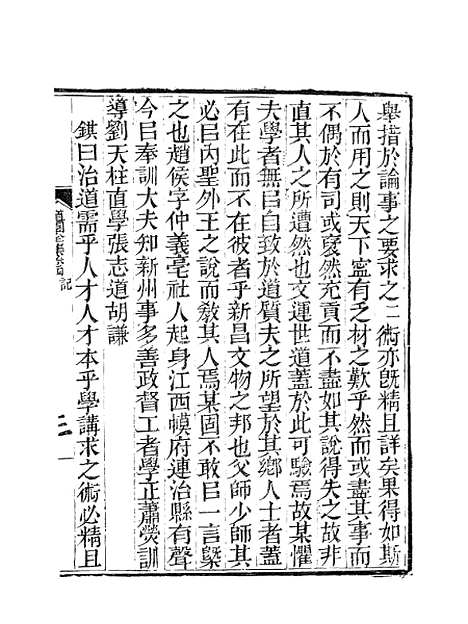 舉措於論事之要求之二術亦旣精且詳矣果得如斯
人而用之則天下寧有乏材之歎乎然而或盡其事而
不偶於有司或裒然充貢而不盡如其說得失之故非
直其人之所遭然也文運世道蓋於此可驗焉故某懼
夫學者無㠯自致於道質夫之所望於其鄉人士者蓋
有在此而不在彼者乎新昌文物之邦也父師少師其
必㠯內聖外王之說而敎其人焉某固不敢㠯一言槩
之也趙侯字仲義亳社人起身江西幙府連治縣有聲
今㠯奉訓大夫知新州事多善政督工者學正蕭熒訓
導劉天柱直學張志道胡謙
鉷曰治道需乎人才人才本乎學講求之術必精且
記
三